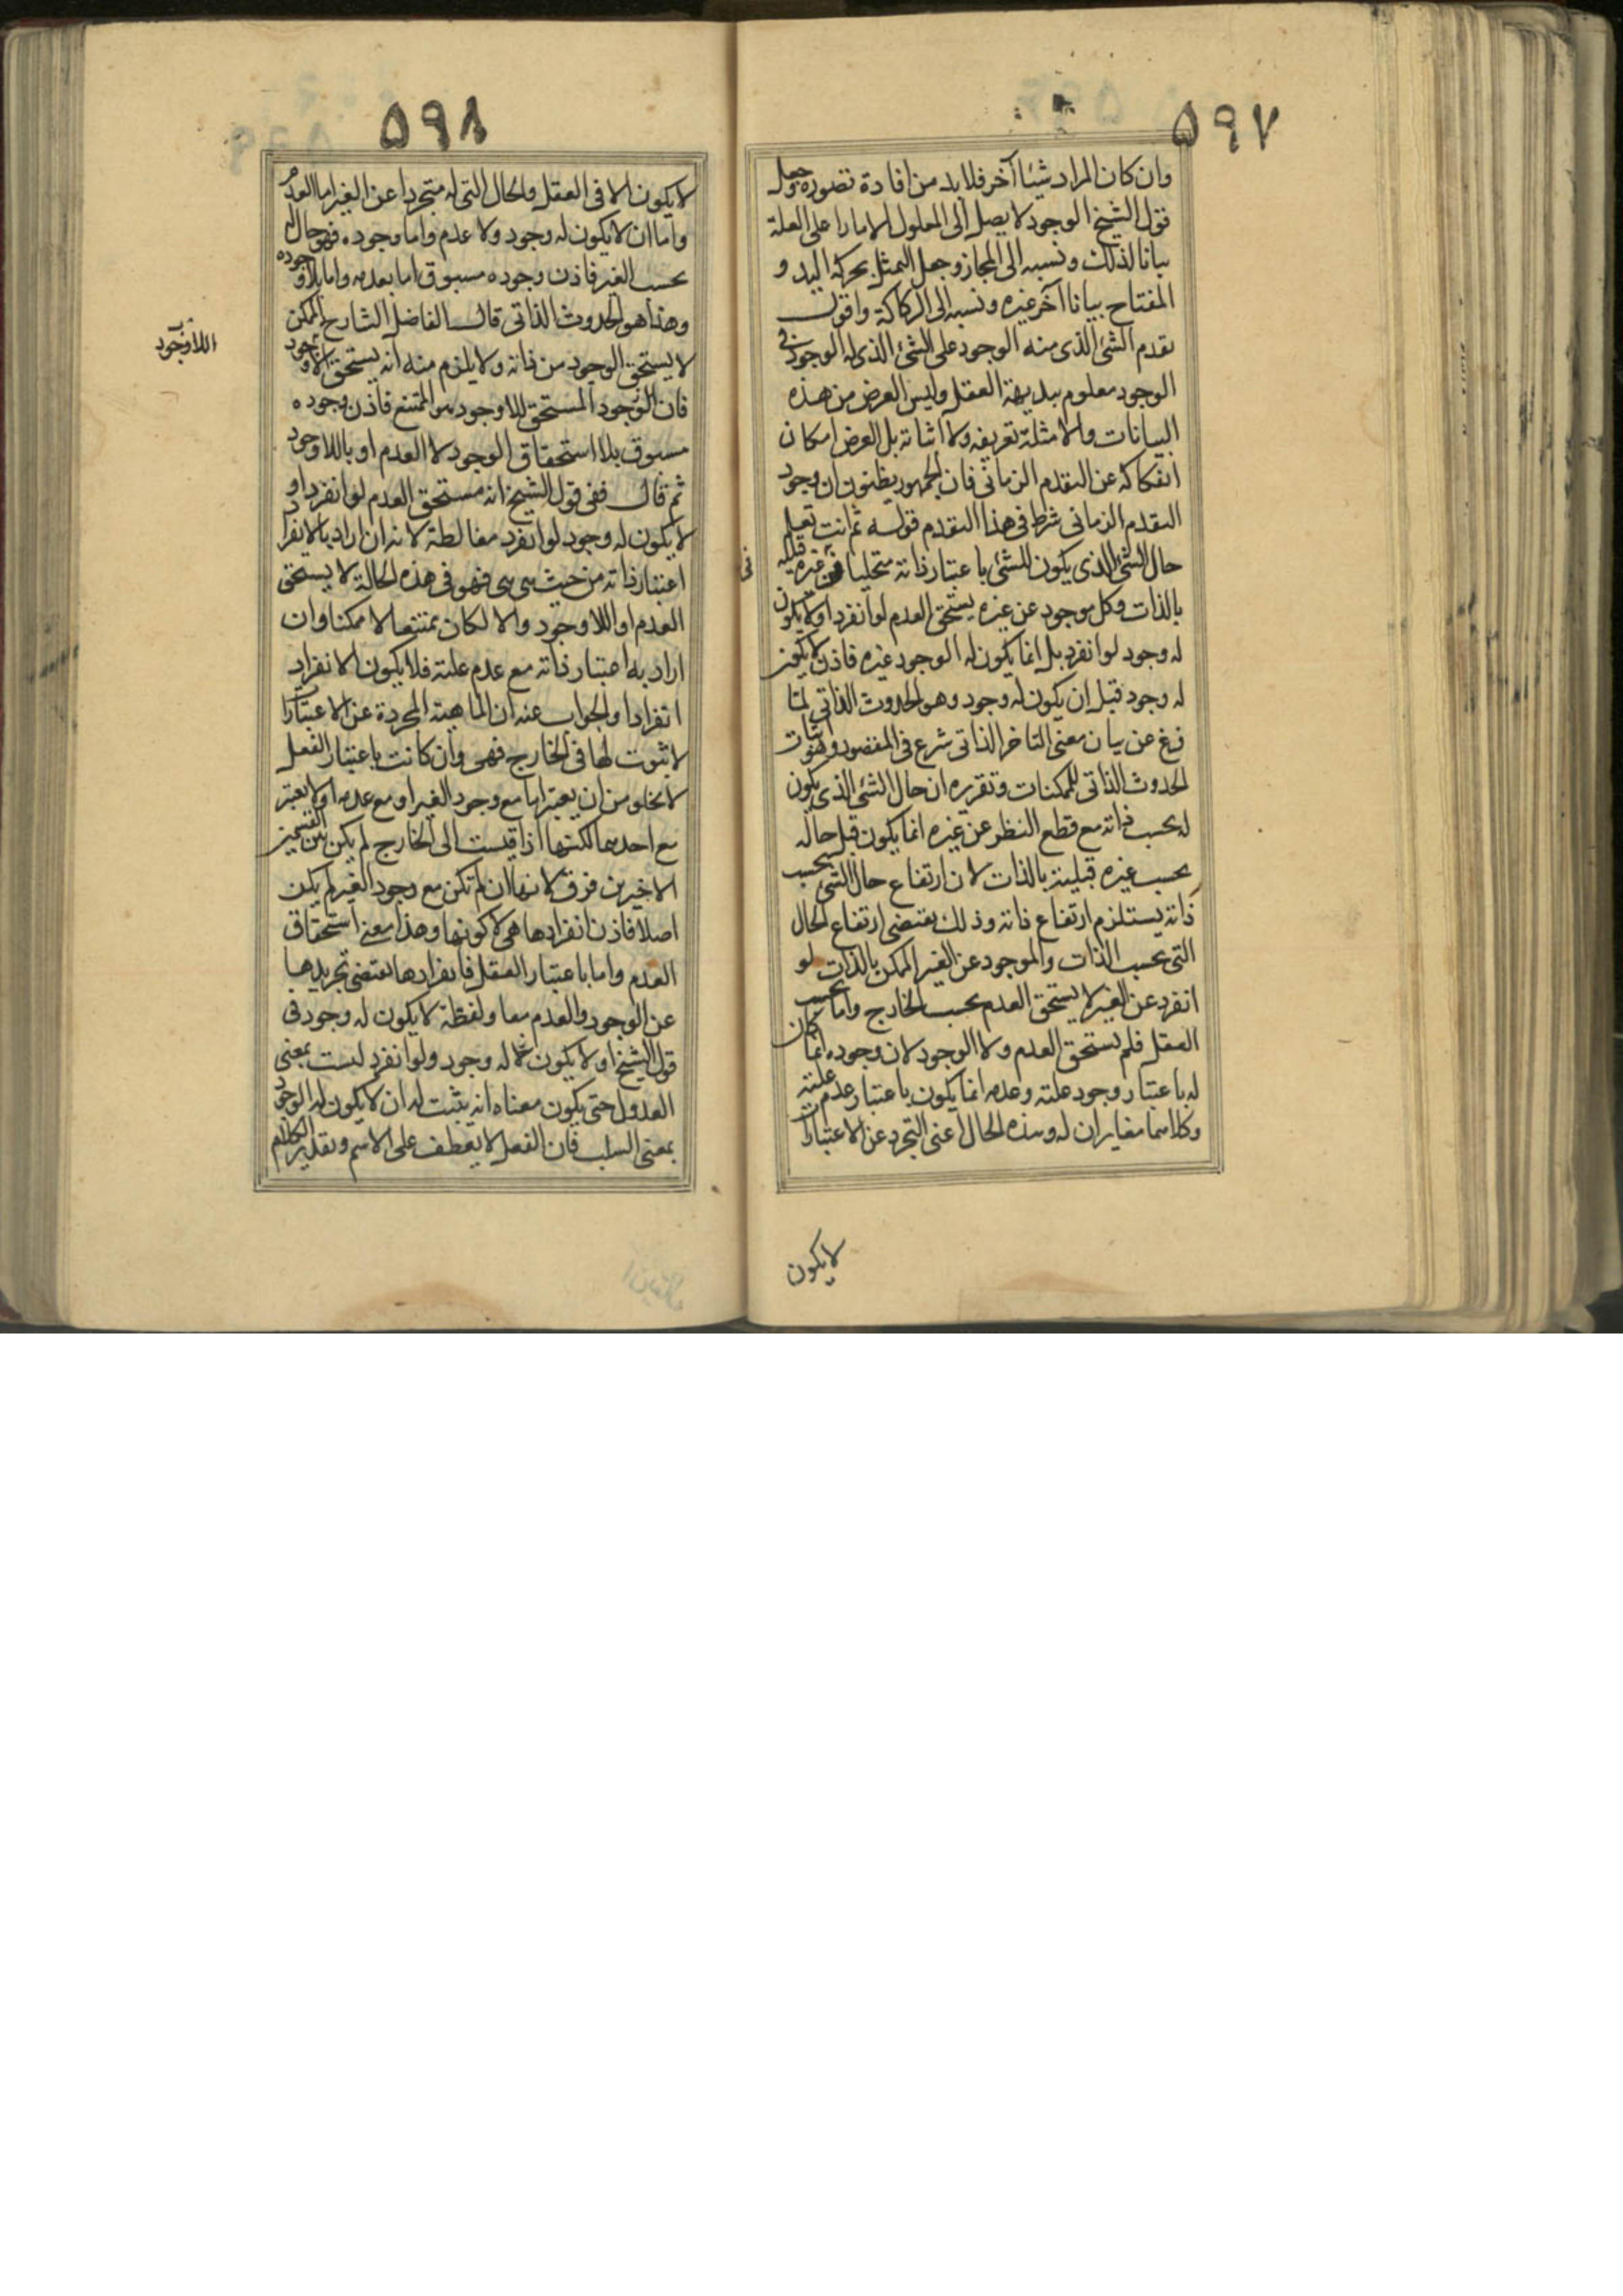 ٥٩٧
وان كان المراد شيئا آخر فلابد من افادة تصوره وجعل
قول الشيخ الوجود لا يصل إلى المعلول الا مارا على العلة
بيانا لذلك ونسبه الى المجاز وجعل التمثل بحركة اليد و
المفتاح بيانا آخر غيره ونسبه الى الركاكة واقول
تقدم الشئ الذى منه الوجود على الشئ الذى له الوجود فى
الوجود معلوم ببديهة العقل وليس الغرض من هذه
البيانات والامثلة تعريفه ولا اثباته بل الغرض امكان
انفكاكه عن التقدم الزمانى فان الجمهور يظنون ان وجود
التقدم الزمانى شرط فى هذا التقدم قوله ثم انت تعلم
حال الشئ الذى يكون للشئ باعتبار ذاته متخليا عن غيره قبله
بالذات وكل موجود عن غيره يستحق العدم لو انفرد اولا يكون
له وجود لو انفرد بل انما يكون له الوجود غيره فاذن لا يكون
له وجود قبل ان يكون له وجود وهو الحدوث الذاتى لما
فرغ عن بيان معنى التاخر الذاتى شرع فى المقصود وهو اثبات
الحدوث الذاتى للممكنات وتقريره ان حال الشئ الذى يكون
له بحسب ذاته مع قطع النظر عن غيره انما يكون قبل حاله
بحسب غيره قبلية بالذات لان ارتفاع حال الشئ بحسب
ذاته يستلزم ارتفاع ذاته وذلك يقتضى ارتفاع الحال
التى بحسب الذات والموجود عن الغير الممكن بالذات لو
انفرد عن الغير لا يستحق العدم بحسب الخارج واما بحسب
العقل فلم يستحق العدم ولا الوجود لان وجوده انما كان
له باعتبار وجود علته وعدمه انما يكون باعتبار عدم علته
وكلاهما مغايران له وهذه الحال اعنى التجرد عن الاعتبارات
لا يكون
٥٩٨
لا يكون الا فى العقل والحال التى له متجردا عن الغير اما العدم
واما ان لا يكون له وجود ولا عدم واما وجوده فهو حال له
بحسب الغير فاذن وجوده مسبوق اما بعدمه واما بلا وجوده
وهذا هو الحدوث الذاتى قال الفاضل الشارح الممكن
لا يستحق الوجود من ذاته ولا يلزم منه انه يستحق اللاوجود
اللاوجود
فان الوجود المستحق للاوجود هو الممتنع فاذن وجوده
مسبوق بلا استحقاق الوجود لا العدم او باللاوجود
ثم قال ففى قول الشيخ انه مستحق العدم لو انفرد او
لا يكون له وجود لو انفرد مغالطة لانه ان اراد بالانفراد
اعتبار ذاته من حيث هى هى فهو فى هذه الحالة لا يستحق
العدم او اللاوجود والا لكان ممتنعا لا ممكنا وان
اراد به اعتبار ذاته مع عدم علته فلا يكون الانفراد
انفرادا والجواب عنه ان الماهية المجردة عن الاعتبارات
لا ثبوت لها فى الخارج فهى وان كانت باعتبار الفعل
لا تخلو من ان يعتبرها مع وجود الغير او مع عدمه اولا يعتبر
مع احدهما لكنها اذا قيست الى الخارج لم يكن بين القسمين
الاخيرين فرق لانها ان لم تكن مع وجود الغير لم يكن
اصلا فاذن انفرادها هى لا كونها وهذا معنى استحقاق
العدم واما باعتبار العقل فانفرادها يقتضى تجريدها
عن الوجود والعدم معا ولفظة لا يكون له وجود فى
قول الشيخ او لا يكون له وجود ولو انفرد ليست بمعنى
العدول حتى يكون معناه انه يثبت له ان لا يكون له الوجود
بمعنى السلب فان الفعل لا يعطف على الاسم وتقدير الكلام